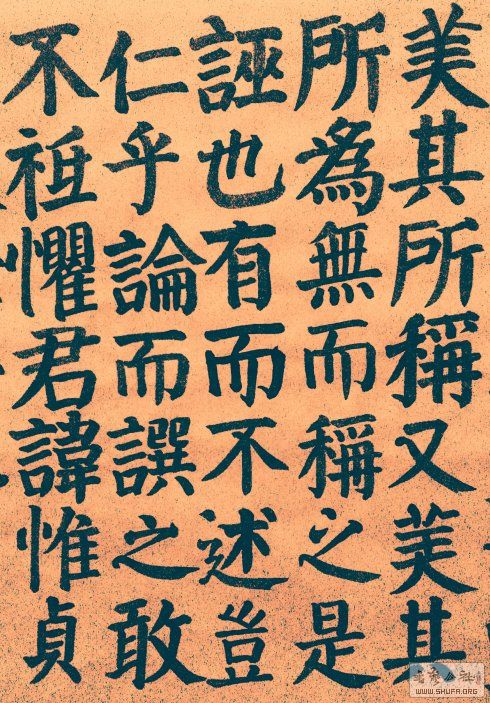 美其所稱又美其
所爲無而稱之是
誣也有而不述豈
仁乎論而譔之敢
不祗懼君諱惟貞
WWW.SHUFA.ORG